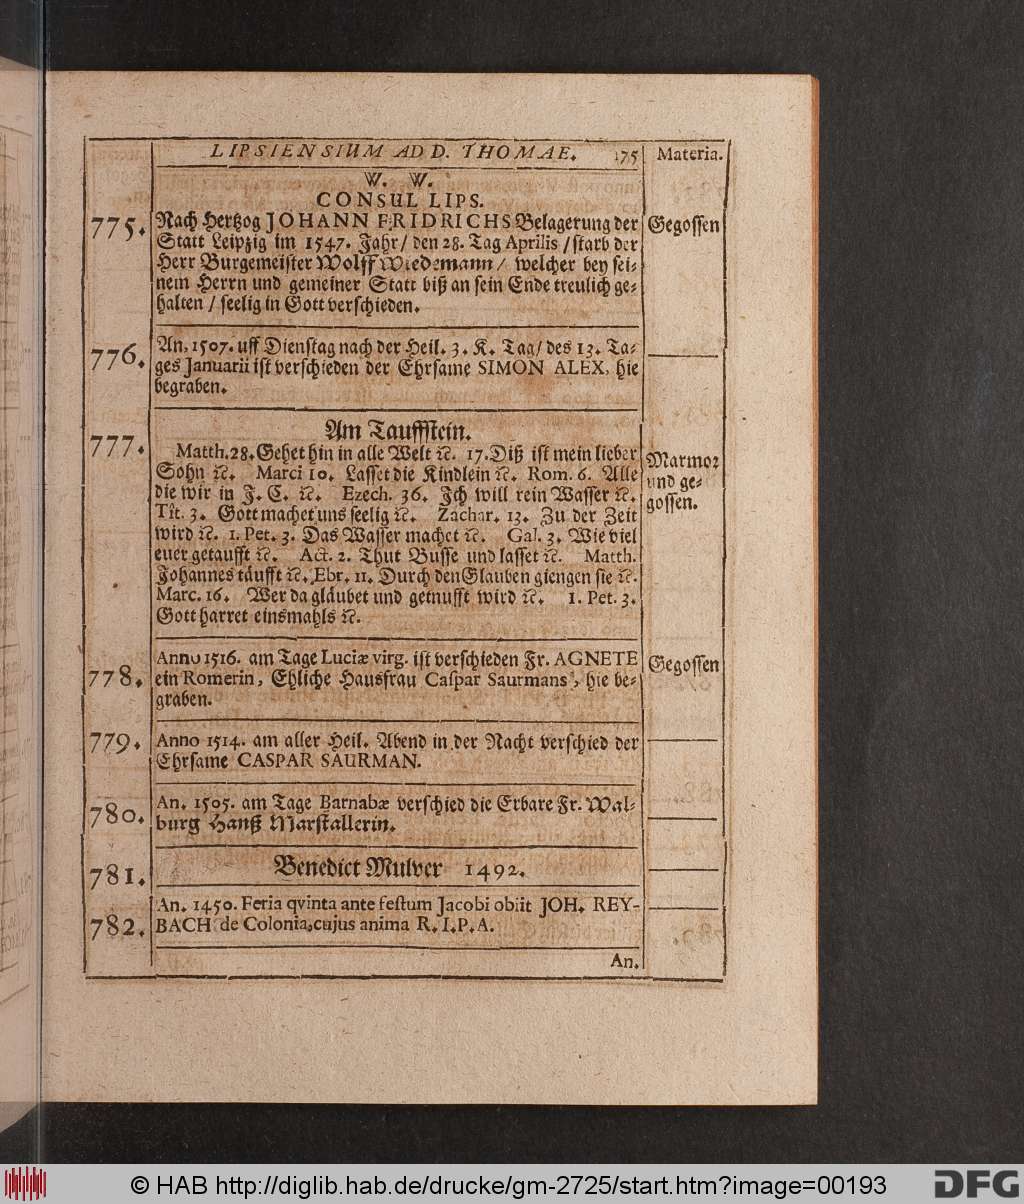 LIPSIENSIUM AD D. THOMAE. 175 Materia.
W. W.
CONSUL LIPS.
775. Nach Hertzog JOHANN FRIDRICHS Belagerung der Gegossen
Statt Leipzig im 1547. Jahr / den 28. Tag Aprilis / starb der
Herr Burgemeister Wolff Wiedemann / welcher bey sei-
nem Herrn und gemeiner Statt biß an sein Ende treulich ge-
halten / seelig in Gott verschieden.
776. An. 1507. uff Dienstag nach der Heil. 3. K. Tag / des 13. Ta-
ges Januarii ist verschieden der Ehrsame SIMON ALEX, hie
begraben.
777. Am Tauffstein.
Matth. 28. Gehet hin in alle Welt ꝛc. 17. Diß ist mein lieber Marmor
Sohn ꝛc. Marci 10. Lasset die Kindlein ꝛc. Rom. 6. Alle und ge-
die wir in J. C. ꝛc. Ezech. 36. Ich will rein Wasser ꝛc. gossen.
Tit. 3. Gott machet uns seelig ꝛc. Zachar. 13. Zu der Zeit
wird ꝛc. 1. Pet. 3. Das Wasser machet ꝛc. Gal. 3. Wie viel
euer getaufft ꝛc. Act. 2. Thut Busse und lasset ꝛc. Matth.
Johannes täufft ꝛc. Ebr. 11. Durch den Glauben giengen sie ꝛc.
Marc. 16. Wer da gläubet und getnufft wird ꝛc. 1. Pet. 3.
Gott harret einsmahls ꝛc.
778. Anno 1516. am Tage Luciæ virg. ist verschieden Fr. AGNETE Gegossen
ein Romerin, Ehliche Hausfrau Caspar Saurmans, hie be-
graben.
779. Anno 1514. am aller Heil. Abend in der Nacht verschied der
Ehrsame CASPAR SAURMAN.
780. An. 1505. am Tage Barnabæ verschied die Erbare Fr. Wal-
burg Hanß Marstallerin.
781. Benedict Mulver 1492.
782. An. 1450. Feria qvinta ante festum Jacobi obiit JOH. REY-
BACH de Colonia, cujus anima R. I. P. A.
An.
© HAB http://diglib.hab.de/drucke/gm-2725/start.htm?image=00193
DFG